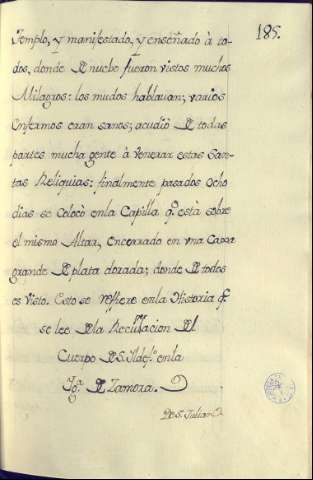 185.
Templo, y manifestado, y enseñado à to-
dos, donde de nuebe fueron vistos muchos
Milagros: los mudos hablauan; varios
enfermos eran sanos; acudiò de todas
partes mucha gente à venerar estas San-
tas Reliquias: finalmente pasados ocho
dias se colocò enla Capilla q.e està sobre
el mismo Altar, encerrado en vna Caxa
grande de plata dorada; donde de todos
es visto. Esto se refiere enla Historia q.e
se lee dela Recuacion del
Cuerpo de S. Ildef.o enla
Ig.a de Zamora.
De S. Julian